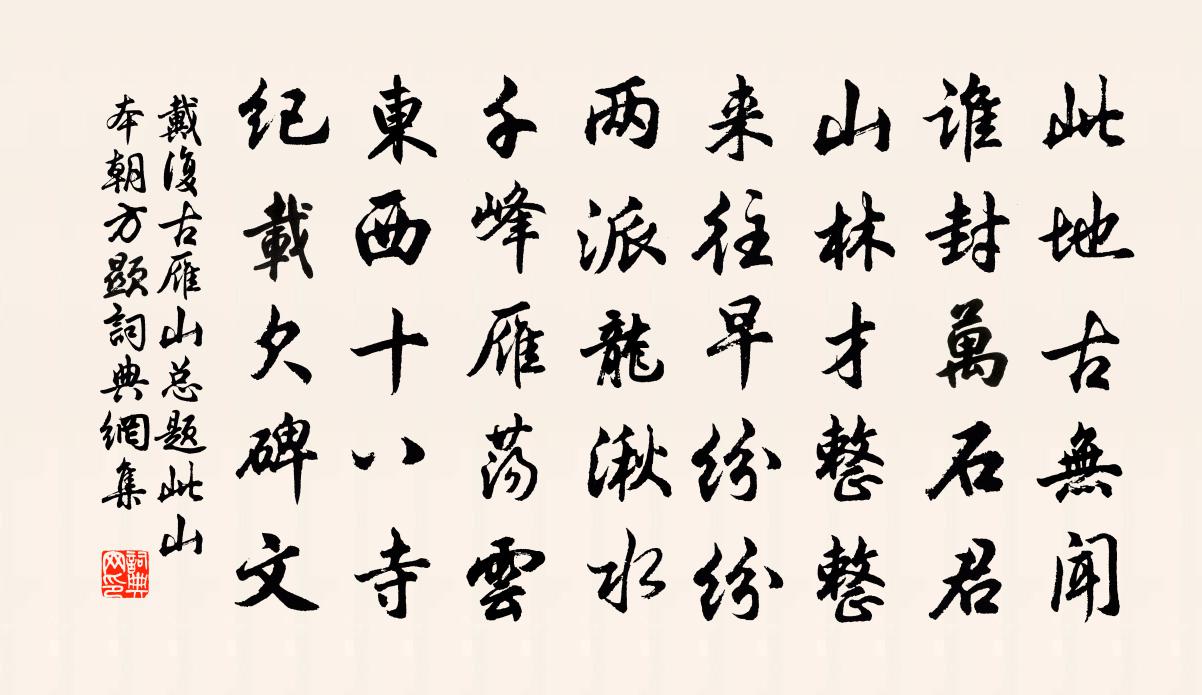 此地古無聞
誰封萬石君
山林才整整
来往早紛紛
两派龍湫水
千峰雁荡雲
東西十八寺
紀載欠碑文
戴復古雁山总题此山
本朝方顕詞典網集
詞典網印